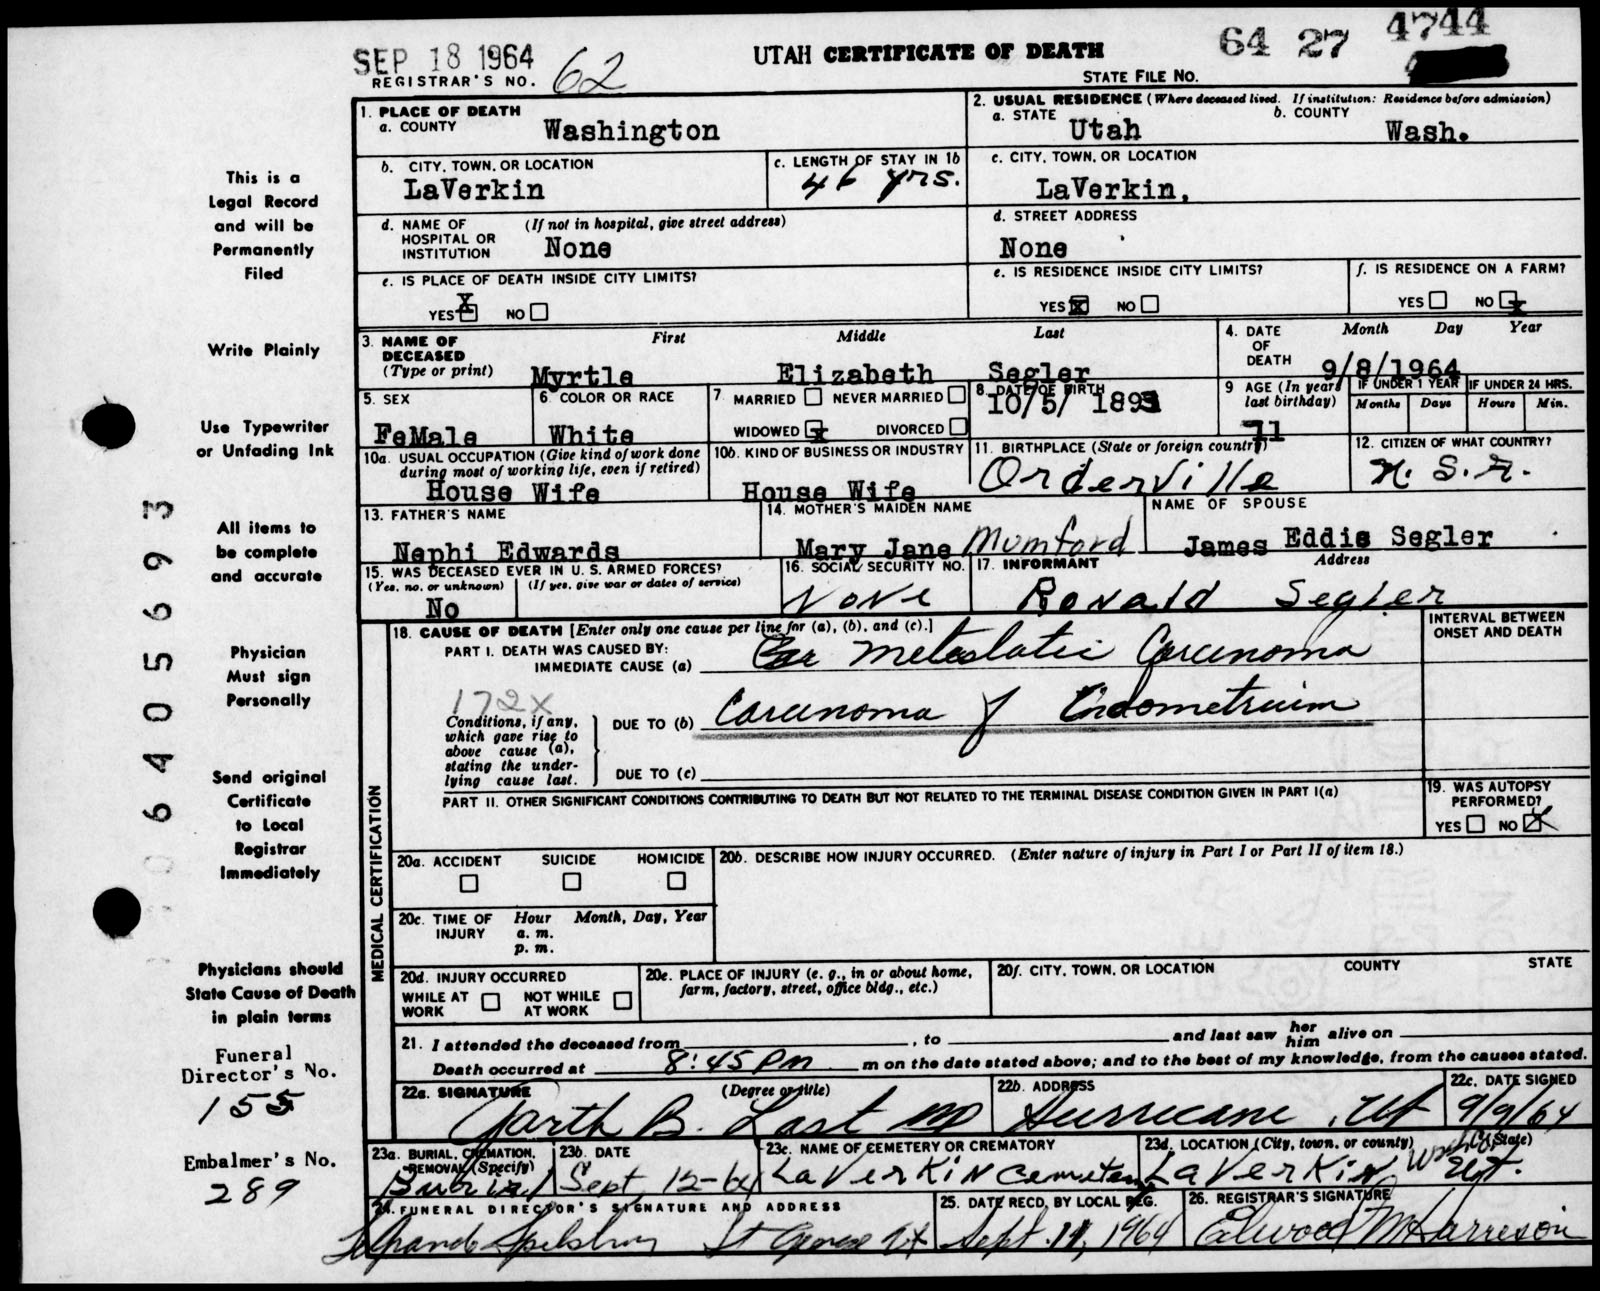 SEP 18 1964
REGISTRAR'S NO. 62
UTAH CERTIFICATE OF DEATH
64 27 4744
STATE FILE NO.
This is a
Legal Record
and will be
Permanently
Filed
Write Plainly
Use Typewriter
or Unfading Ink
All items to
be complete
and accurate
Physician
Must sign
Personally
Send original
Certificate
to Local
Registrar
Immediately
Physicians should
State Cause of Death
in plain terms
Funeral
Director's No.
155
Embalmer's No.
289
06405693
1. PLACE OF DEATH
a. COUNTY Washington
2. USUAL RESIDENCE (Where deceased lived. If institution: Residence before admission)
a. STATE Utah b. COUNTY Wash.
b. CITY, TOWN, OR LOCATION LaVerkin
c. LENGTH OF STAY IN 1b 46 yrs.
c. CITY, TOWN, OR LOCATION LaVerkin,
d. NAME OF HOSPITAL OR INSTITUTION (If not in hospital, give street address) None
d. STREET ADDRESS None
e. IS PLACE OF DEATH INSIDE CITY LIMITS?
YES X NO
e. IS RESIDENCE INSIDE CITY LIMITS?
YES X NO
f. IS RESIDENCE ON A FARM?
YES NO X
3. NAME OF DECEASED (Type or print)
First Middle Last
Myrtle Elizabeth Segler
4. DATE OF DEATH Month Day Year
9/8/1964
5. SEX FeMale
6. COLOR OR RACE White
7. MARRIED NEVER MARRIED
WIDOWED X DIVORCED
8. DATE OF BIRTH 10/5/ 1893
9 AGE (In years last birthday) 71
IF UNDER 1 YEAR Months Days
IF UNDER 24 HRS. Hours Min.
10a. USUAL OCCUPATION (Give kind of work done during most of working life, even if retired)
House Wife
10b. KIND OF BUSINESS OR INDUSTRY
House Wife
11. BIRTHPLACE (State or foreign country)
Orderville
12. CITIZEN OF WHAT COUNTRY?
13. FATHER'S NAME
Nephi Edwards
14. MOTHER'S MAIDEN NAME
Mary Jane Mumford
NAME OF SPOUSE
James Eddie Segler
15. WAS DECEASED EVER IN U.S. ARMED FORCES?
(Yes, no, or unknown) (If yes, give war or dates of service)
No
16. SOCIAL SECURITY NO.
None
17. INFORMANT Address
Ronald Segler
MEDICAL CERTIFICATION
18. CAUSE OF DEATH [Enter only one cause per line for (a), (b), and (c).]
INTERVAL BETWEEN ONSET AND DEATH
PART I. DEATH WAS CAUSED BY:
IMMEDIATE CAUSE (a) metastatic Carcinoma
172X
Conditions, if any, which gave rise to above cause (a), stating the underlying cause last.
DUE TO (b) Carcinoma of Endometrium
DUE TO (c)
PART II. OTHER SIGNIFICANT CONDITIONS CONTRIBUTING TO DEATH BUT NOT RELATED TO THE TERMINAL DISEASE CONDITION GIVEN IN PART I(a)
19. WAS AUTOPSY PERFORMED?
YES NO X
20a. ACCIDENT SUICIDE HOMICIDE
20b. DESCRIBE HOW INJURY OCCURRED. (Enter nature of injury in Part I or Part II of item 18.)
20c. TIME OF INJURY Hour Month, Day, Year
a. m.
p. m.
20d. INJURY OCCURRED
WHILE AT WORK NOT WHILE AT WORK
20e. PLACE OF INJURY (e. g., in or about home, farm, factory, street, office bldg., etc.)
20f. CITY, TOWN, OR LOCATION COUNTY STATE
21. I attended the deceased from , to and last saw her him alive on
Death occurred at 8:45 PM m on the date stated above; and to the best of my knowledge, from the causes stated.
22a. SIGNATURE (Degree or title)
Garth B. Last MD
22b. ADDRESS
Hurricane, Ut
22c. DATE SIGNED
9/9/64
23a. BURIAL, CREMATION, REMOVAL (Specify)
Burial
23b. DATE
Sept 12-64
23c. NAME OF CEMETERY OR CREMATORY
LaVerkin Cemetery
23d. LOCATION (City, town, or county) (State)
LaVerkin Wash Co Ut.
24. FUNERAL DIRECTOR'S SIGNATURE AND ADDRESS
Spilsbury St George Ut
25. DATE RECD. BY LOCAL REG.
Sept. 11, 1964
26. REGISTRAR'S SIGNATURE
Elwood M Harreson